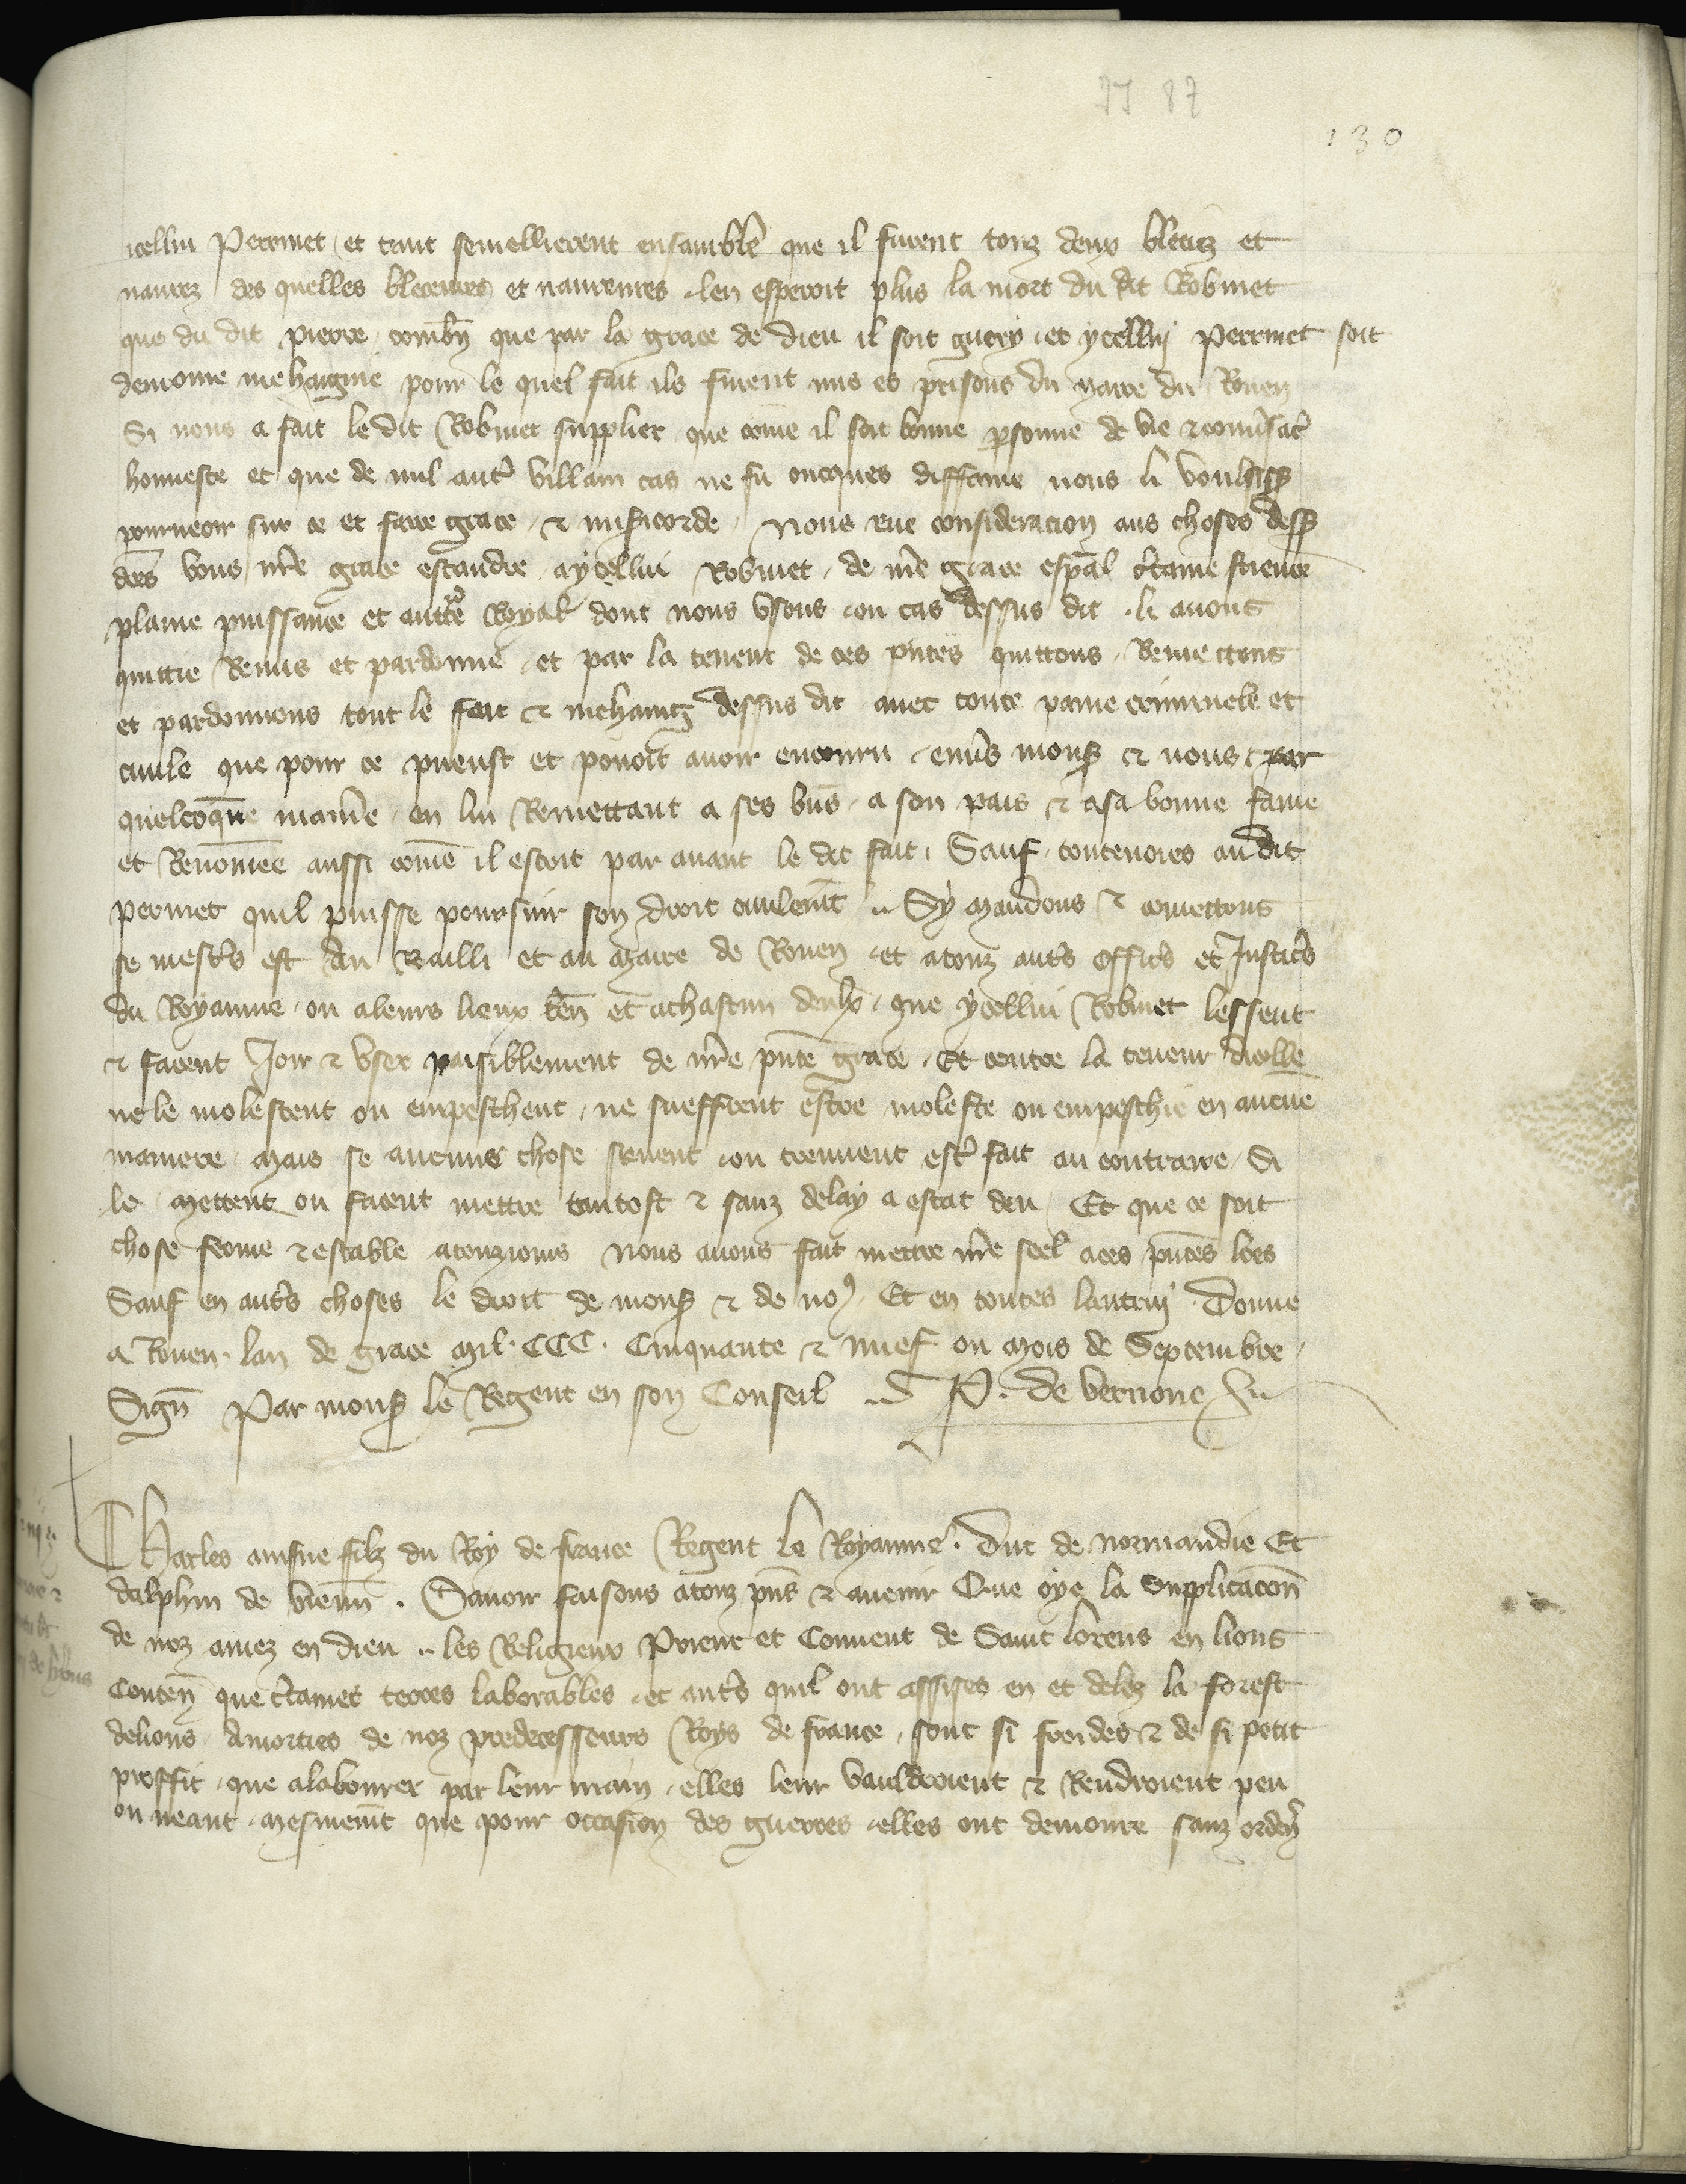 JJ 87
130
icellui Perrinet et tant semellierent ensamble que il furent touz deux bleciez et
navrez des quelles bleceures et navreures len esperoit plus la mort du dit Robinet
que du dit pierre combn que par la grace de dieu il soit guery et ycelluy Perrinet soit
demoure mehaignie pour le quel fait ils furent mis es prisons du maire du Rouen
Si nous a fait le dit Robinet supplier que come il soit bonne psonne de vie & convsac
honneste et que de nul autr villain cas ne fu oncques diffame nous li voulsiss
pourveoir sur ce et faire grace & misicorde Nous eue consideracion aus choses dess
dces vous nre grace estandre a ycellui Robinet de nre grace espal ctaine science
plaine puissance et auttre Royal dont nous usons ou cas dessus dit li avons
quittie Remis et pardonne et par la teneur de ces pntes quittons Remectons
et pardonnons tout le fait & mehaing dessus dit avec toute paine criminele et
civile que pour ce pueust et povoit avoir encouru envs mons & nous par
quelcoque manie en lui Remettant a ses bns a son pais & a sa bonne fame
et Renomee aussi come il estoit par avant le dit fait Sauf toutevoies au dit
perrinet quil puisse poursuir son droit civilemt Sy mandons & comettons
se mests est Au Bailli et au Maire de Rouen et a touz auts offics et Justics
du Royaume ou a leurs lieux ten et a chascun deulx que ycellui Robinet lessent
& facent Joir & user paisiblement de nre pnte grace Et contre la teneur dicelle
ne le molestent ou empeschent ne sueffrent estre moleste ou empeschie en aucune
maniere Mais se aucune chose scevent ou treuvent estr fait au contraire Si
le mettent ou facent mettre tantost & sanz delay a estat deu Et que ce soit
chose ferme & estable a touzjours Nous avons fait mettre nre seel a ces pntes lres
Sauf en auts choses le droit de mons & de no9 Et en toutes lautruy Donne
a Rouen lan de grace Mil CCC Cinquante & nuef ou mois de Septembre
Sign Par mons le Regent en son Conseil P. de vernone
Charles ainsne filz du Roy de france Regent le Royaume Duc de normandie Et
dalphin de vienn Savoir faisons a touz pns & avenir Que oye la supplicacon
de noz amez en dieu les Religieux Prieur et Couvent de Saint lorens en lions
Conten que ctaines terres laborables et auts quil ont assises en et delez la forest
de lions Amorties de noz predecesseurs Roys de france sont si froides & de si petit
proffit que a labourer par leur main elles leur vauldroient & Rendroient peu
ou neant mesmemt que pour occasion des guerres elles ont demoure sanz orden